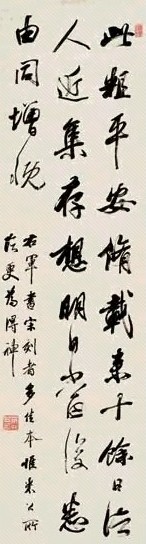 此粗平安脩載來十餘日諸
人近集存想明日當復悉
由同增慨
右軍書宋刻者多佳本惟米公所
更為得神